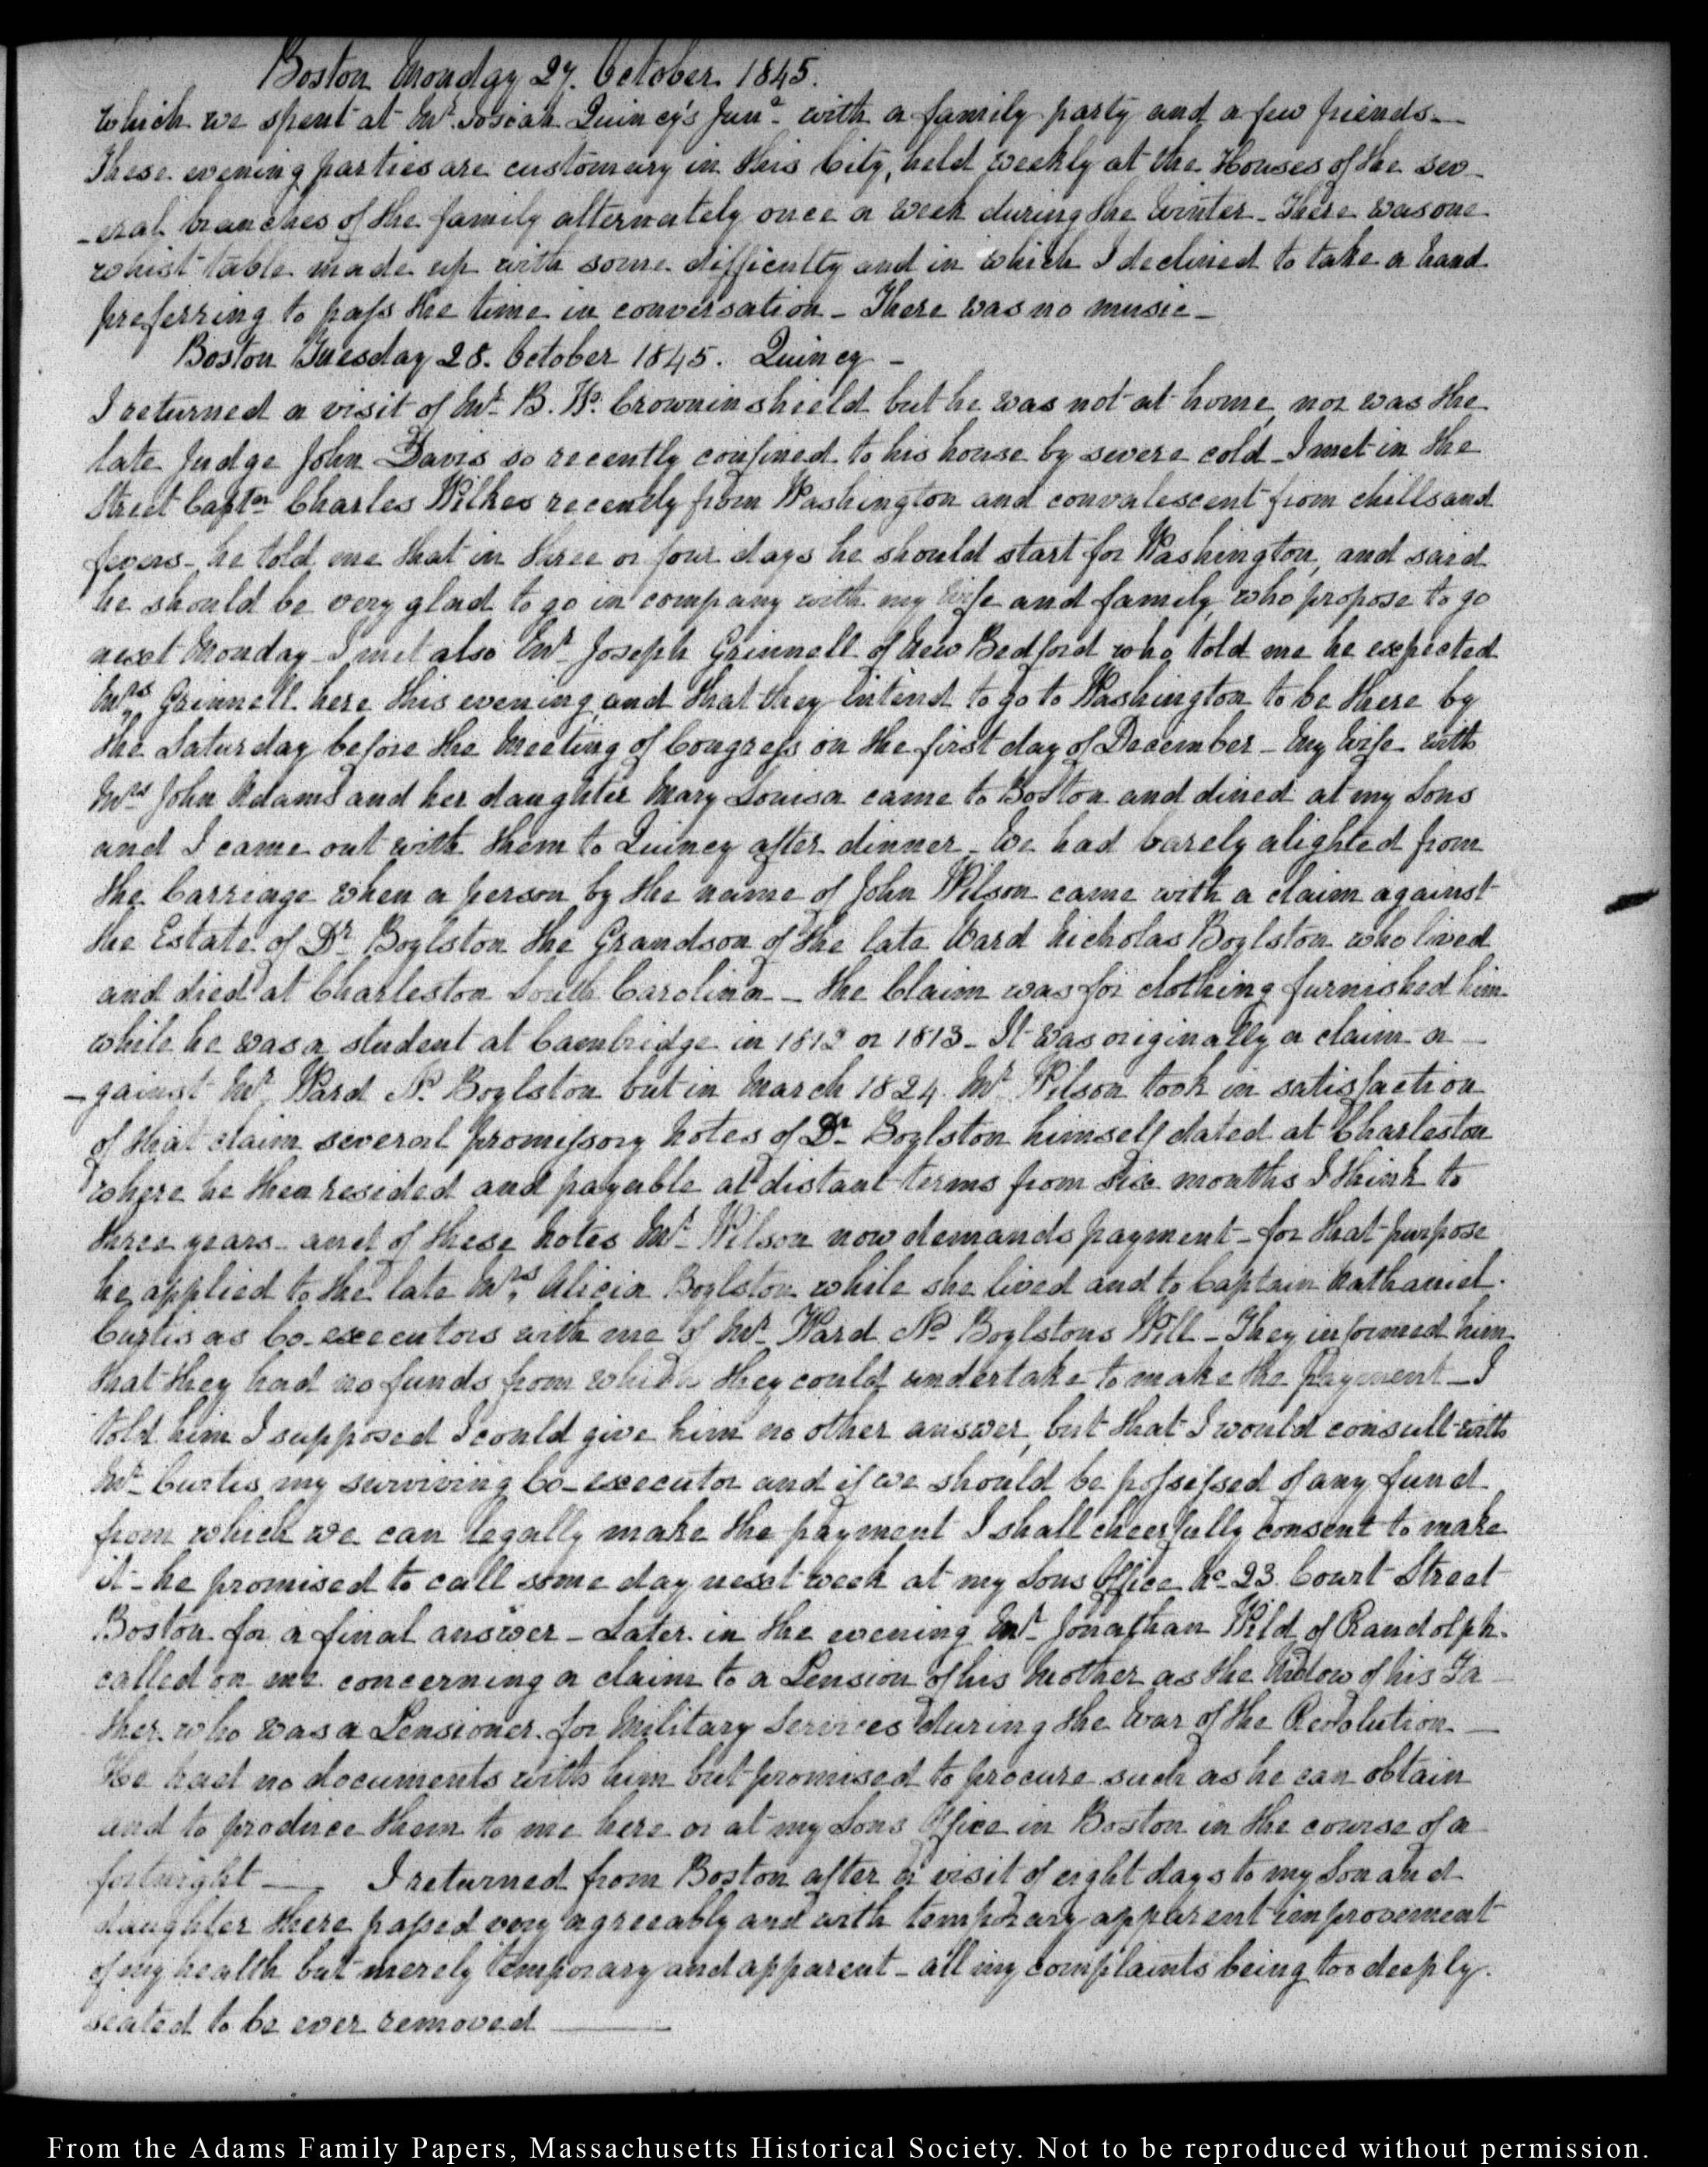 Boston Monday 27. October 1845.
which we spent at Mr. Josiah Quincy's Junr. with a family party and a few friends—
These evening parties are customary in this City, held weekly at the Houses of the sev-
-eral branches of the family alternately once a week during the Winter - There was one
whist table made up with some difficulty and in which I declined to take a hand
preferring to pass the time in conversation - There was no music -
Boston Tuesday 28. October 1845. Quincy -
I returned a visit of Mr. B. W. Crowninshield but he was not at home, nor was the
late Judge John Davis so recently confined to his house by severe cold - I met in the
Street Captn Charles Wilkes recently from Washington and convalescent from chills and
fevers - he told me that in three or four days he should start for Washington, and said
he should be very glad to go in company with my wife and family, who propose to go
next Monday - I met also Mr. Joseph Grinnell of New Bedford who told me he expected
Mrs. Grinnell here this evening, and that they intend to go to Washington to be there by
the Saturday before the Meeting of Congress on the first day of December - My Wife with
Mrs John Adams and her daughter Mary Louisa came to Boston and dined at my Sons
and I came out with them to Quincy after dinner - We had barely alighted from
the Carriage when a person by the name of John Wilson came with a claim against
the Estate of Dr. Boylston the Grandson of the late Ward Nicholas Boylston who lived
and died at Charleston South Carolina - The Claim was for clothing furnished him
while he was a student at Cambridge in 1812 or 1813 - It was originally a claim a—
-gainst Mr. Ward N. Boylston but in March 1824 Mr. Wilson took in satisfaction
of that claim several promissory Notes of Dr. Boylston himself dated at Charleston
where he then resided and payable at distant terms from six months I think to
three years - and of these Notes Mr. Wilson now demands payment - for that purpose
he applied to the late Mrs. Alicia Boylston while she lived and to Captain Nathaniel
Curtis as Co-executors with me of Mr. Ward N. Boylstons Will - They informed him
that they had no funds from which they could undertake to make the Payment - I
told him I supposed I could give him no other answer, but that I would consult with
Mr. Curtis my surviving Co-executor and if we should be possessed of any fund
from which we can legally make the payment I shall cheerfully consent to make
it - he promised to call some day next week at my Sons Office No. 23. Court Street
Boston for a final answer - Later in the evening Mr. Jonathan Wild of Randolph
called on me concerning a claim to a Pension of his Mother as the Widow of his Fa—
ther who was a Pensioner for Military Services during the War of the Revolution—
He had no documents with him but promised to procure such as he can obtain
and to produce them to me here or at my Sons Office in Boston in the course of a
fortnight — I returned from Boston after a visit of eight days to my Son and
daughter there passed very agreeably and with temporary apparent improvement
of my health but merely temporary and apparent - all my complaints being too deeply
seated to be ever removed ———
From the Adams Family Papers, Massachusetts Historical Society. Not to be reproduced without permission.